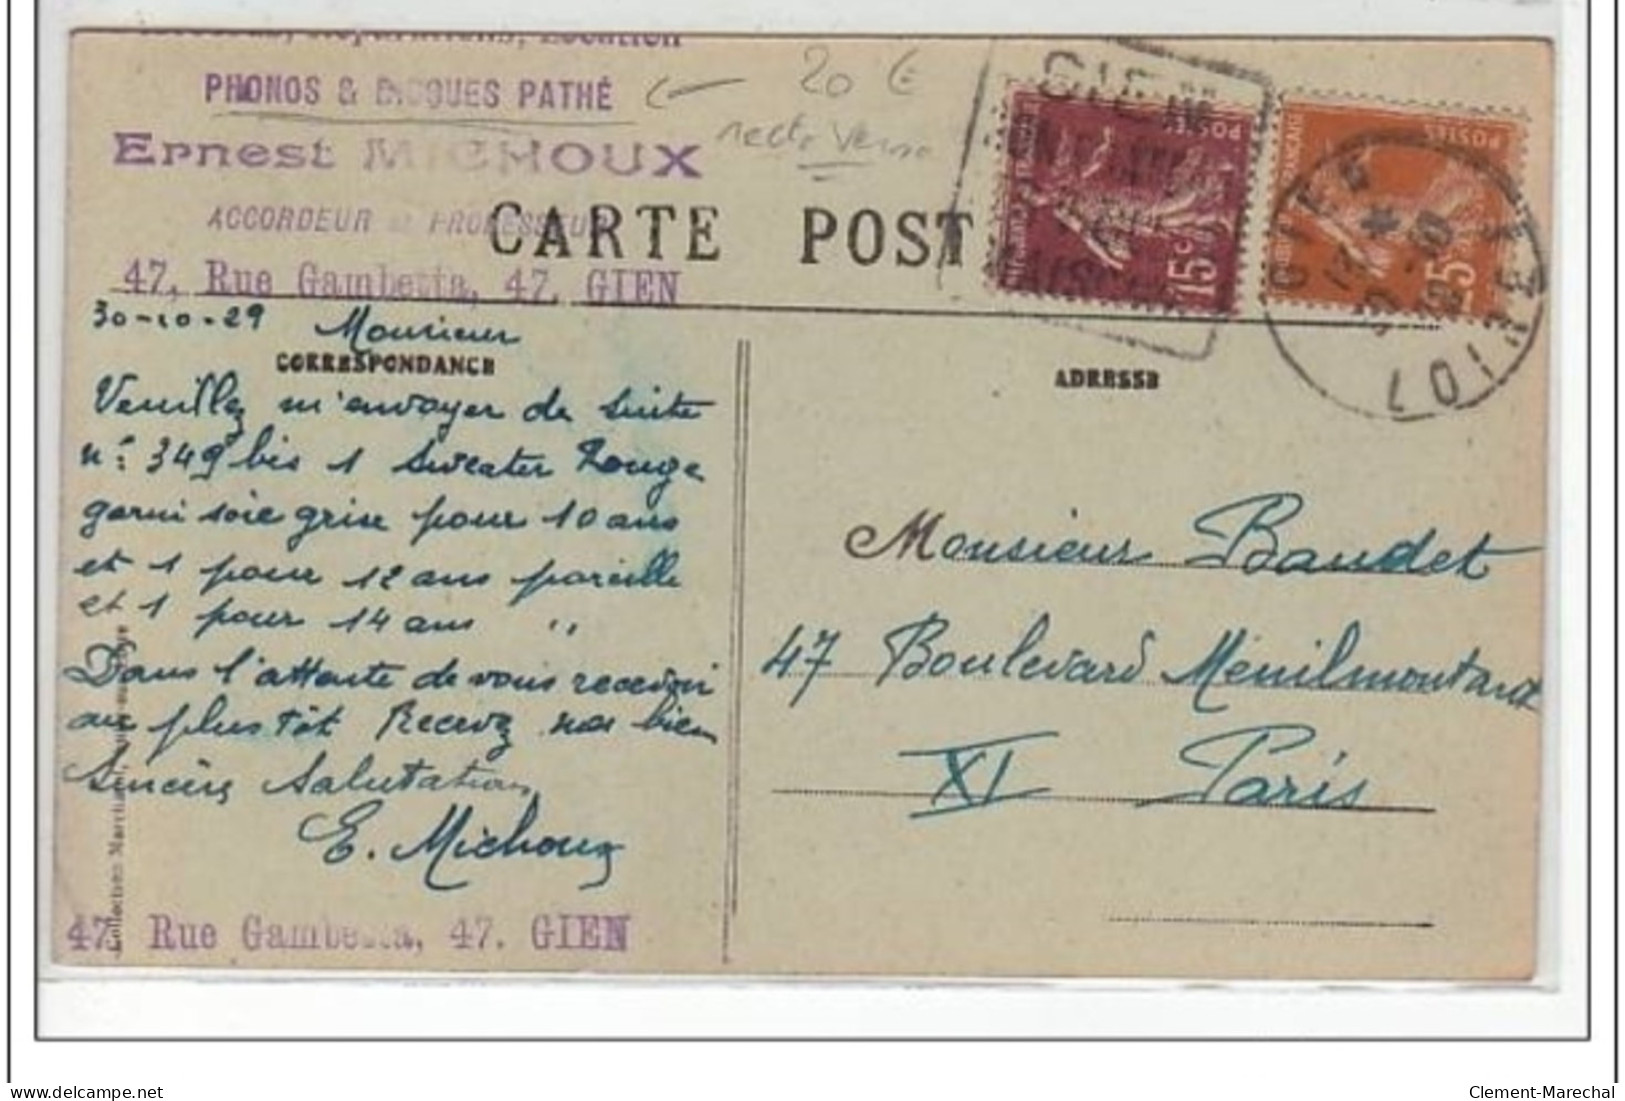 Réparations, Location
PHONOS & DISQUES PATHÉ
20 €
recto verso
Ernest MICHOUX
ACCORDEUR et PROFESSEUR
CARTE POST
47, Rue Gambetta, 47, GIEN
30-10-29 Monsieur
CORRESPONDANCE
Veuillez m'envoyer de suite
n°: 349 bis 1 Sweater Rouge
garni soie grise pour 10 ans
et 1 pour 12 ans pareille
et 1 pour 14 ans "
Dans l'attente de vous recevoir
au plus tôt Recevez nos bien
Sincères Salutations
E. Michoux
47, Rue Gambetta, 47. GIEN
Collection
GIEN
POSTES
15c
POSTES
25c
GIEN
LOIRET
ADRESSE
Monsieur Baudet
47 Boulevard Ménilmontant
XI Paris
delcampe.net
Clement-Marechal